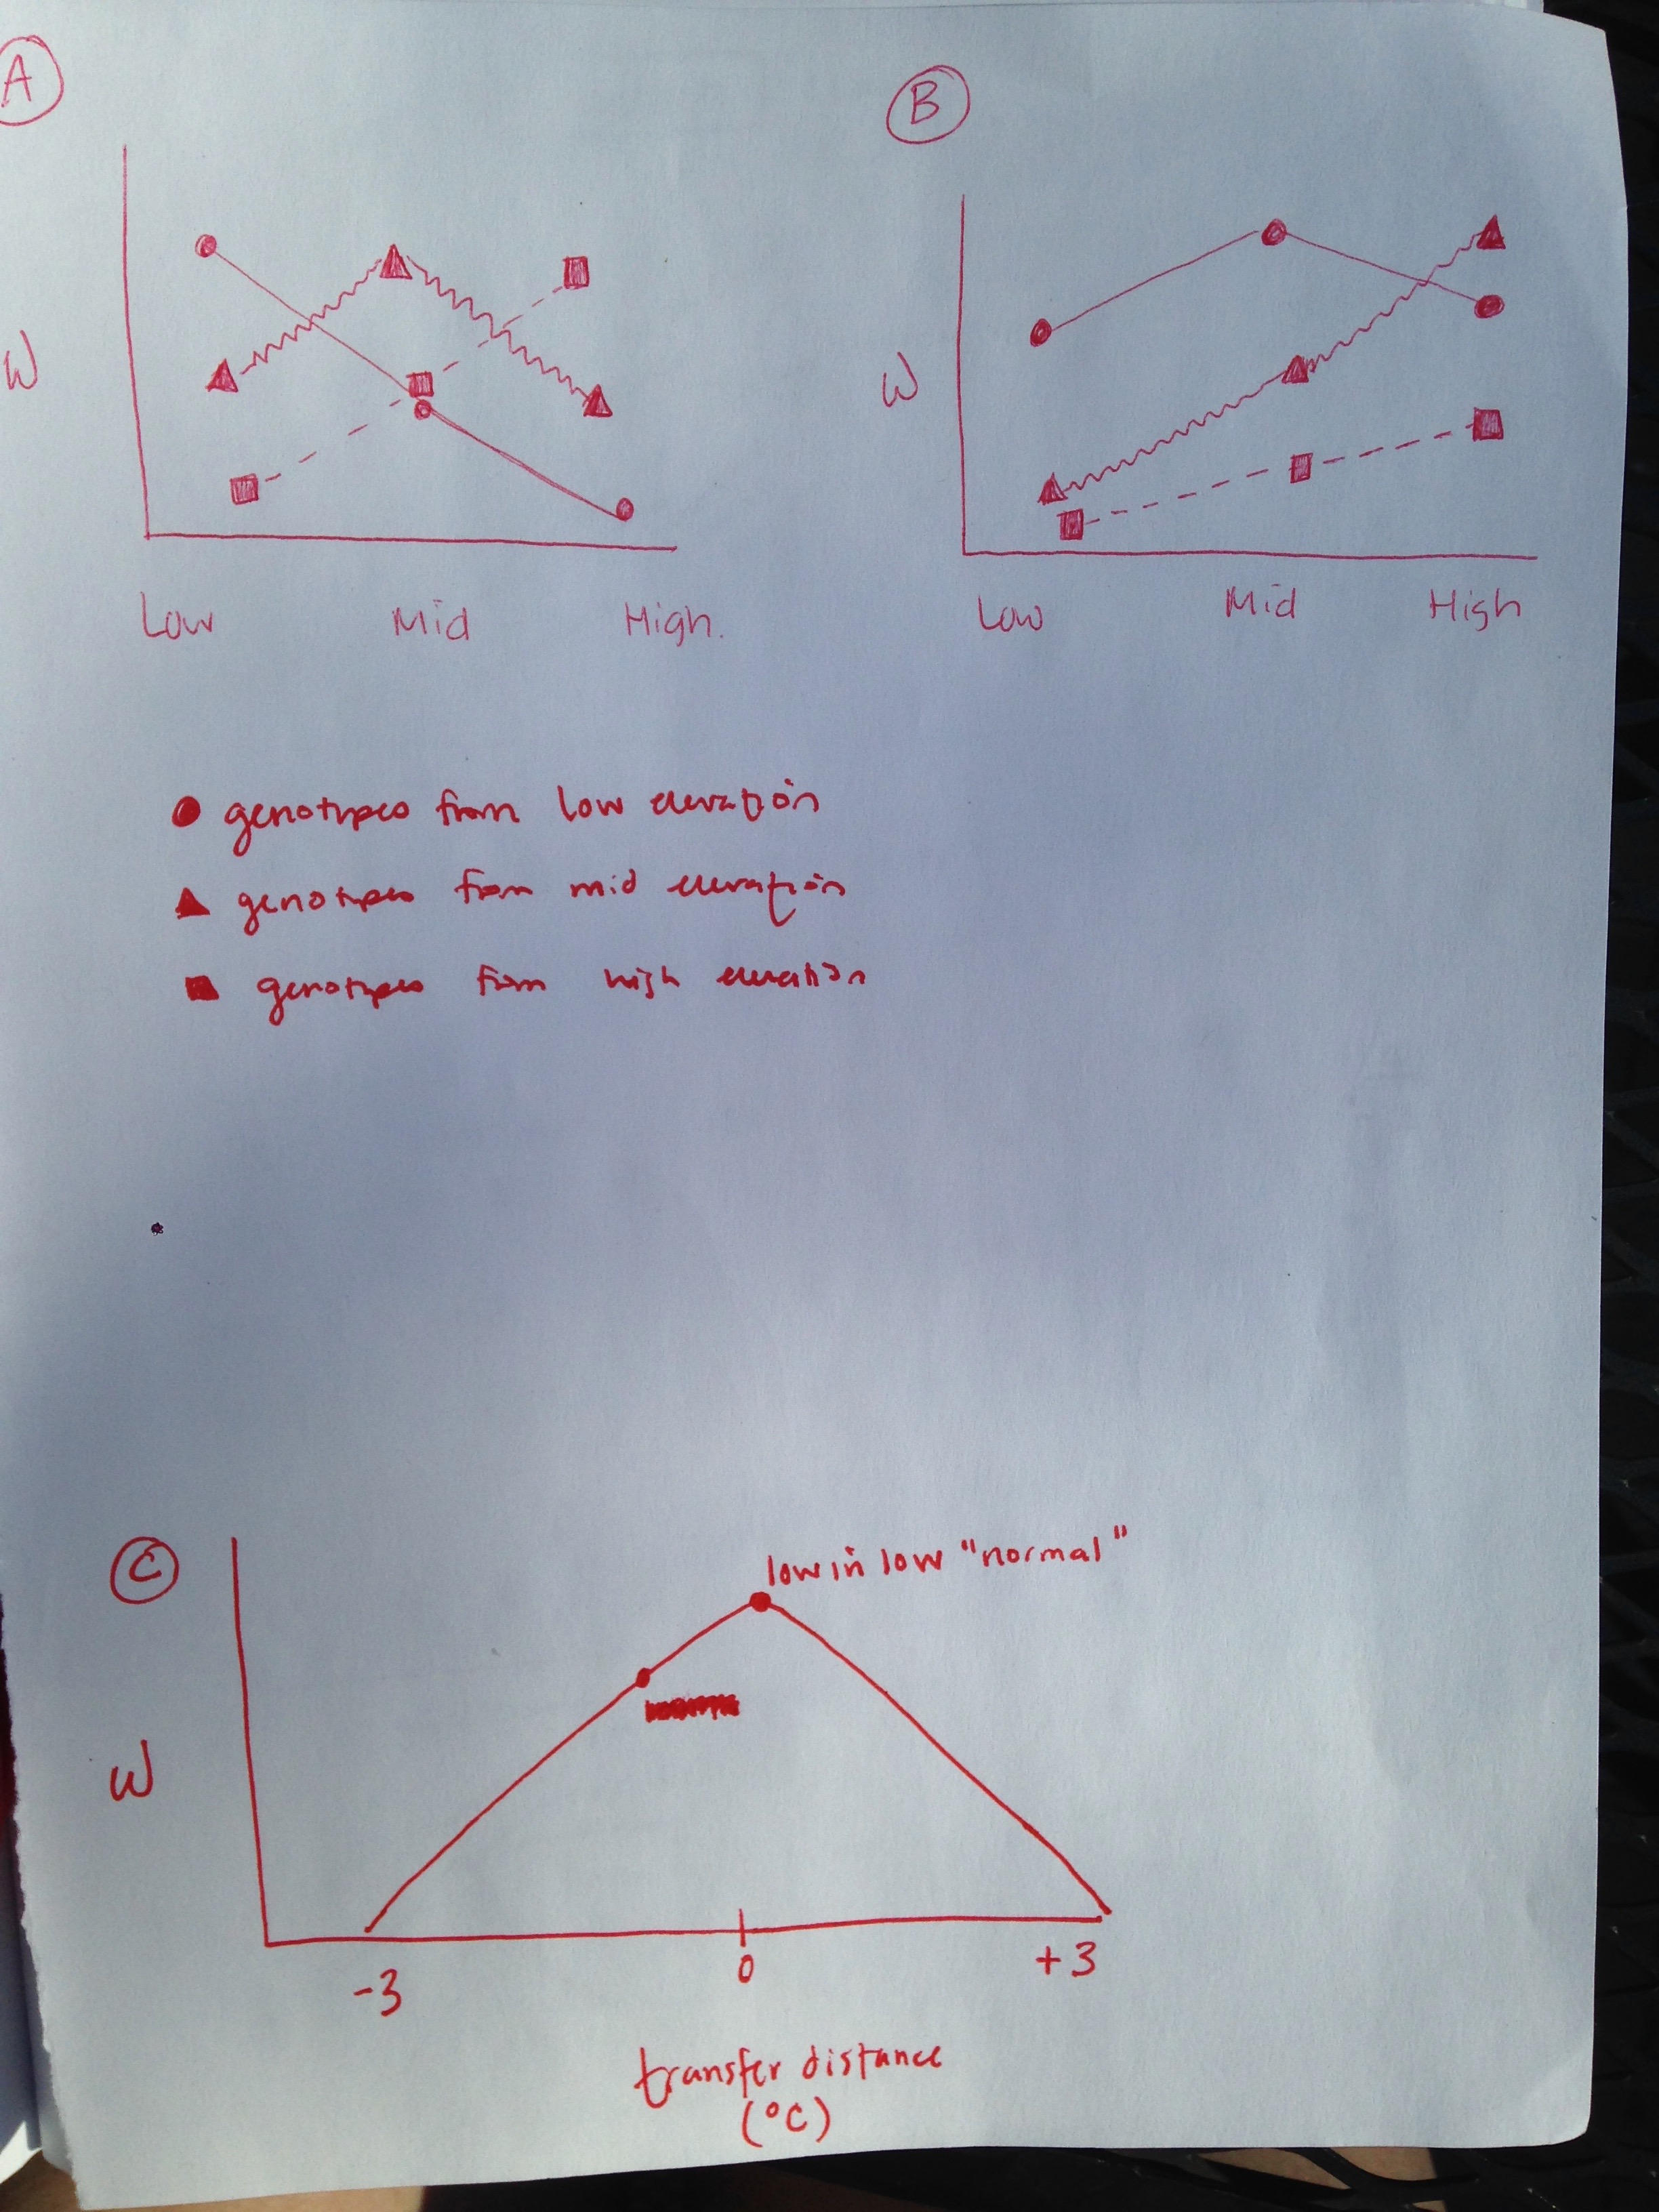 A
B
W
W
Low Mid High.
Low Mid High
genotypes from low elevation
genotypes from mid elevation
genotypes from high elevation
C
low in low "normal"
W
-3 0 +3
transfer distance
(°C)